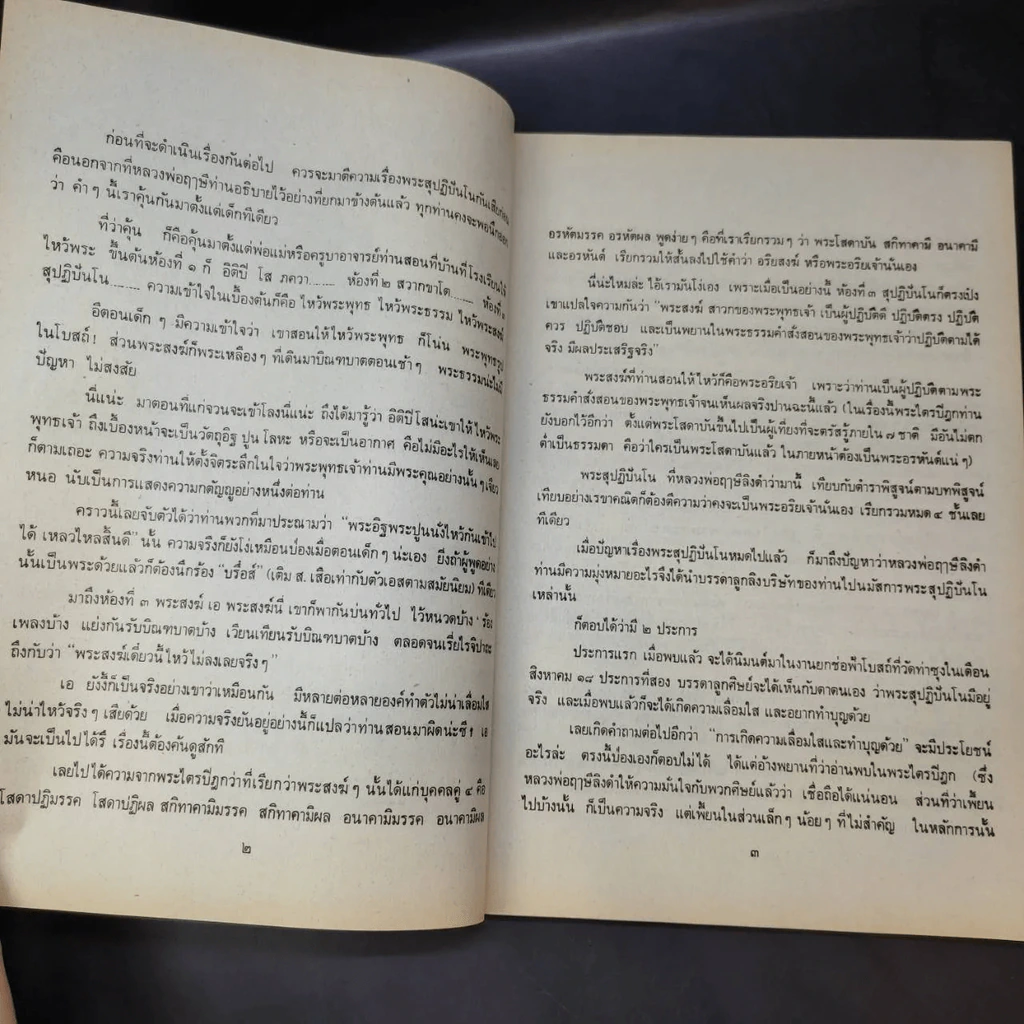 ก่อนที่จะดำเนินเรื่องกันต่อไป ควรจะมาตีความเรื่องพระสุปฏิปันโนกันเสียก่อน
คือนอกจากที่หลวงพ่อฤาษีท่านอธิบายไว้อย่างที่ยกมาข้างต้นแล้ว ทุกท่านคงจะพอนึกออก
ว่า คำๆ นี้เราคุ้นกันมาตั้งแต่เด็กทีเดียว
ที่ว่าคุ้น ก็คือคุ้นมาตั้งแต่พ่อแม่หรือครูบาอาจารย์ท่านสอนที่บ้านที่โรงเรียนให้
ไหว้พระ ขึ้นต้นห้องที่ ๑ ก็ อิติปิ โส ภควา......... ห้องที่ ๒ สวากขาโต......... ห้องที่ ๓
สุปฏิปันโน......... ความเข้าใจในเบื้องต้นก็คือ ไหว้พระพุทธ ไหว้พระธรรม ไหว้พระสงฆ์
อีตอนเด็กๆ มีความเข้าใจว่า เขาสอนให้ไหว้พระพุทธ ก็โน่น พระพุทธรูป
ในโบสถ์! ส่วนพระสงฆ์ก็พระเหลืองๆ ที่เดินมาบิณฑบาตตอนเช้าๆ พระธรรมน่ะไม่มี
ปัญหา ไม่สงสัย
นี่แน่ะ มาตอนที่แก่จวนจะเข้าโลงนี่แน่ะ ถึงได้มารู้ว่า อิติปิโสน่ะเขาให้ไหว้พระ
พุทธเจ้า ถึงเบื้องหน้าจะเป็นวัตถุอิฐ ปูน โลหะ หรือจะเป็นอากาศ คือไม่มีอะไรให้เห็นเลย
ก็ตามเถอะ ความจริงท่านให้ตั้งจิตระลึกในใจว่าพระพุทธเจ้าท่านมีพระคุณอย่างนั้นๆ เจียว
หนอ นับเป็นการแสดงความกตัญญูอย่างหนึ่งต่อท่าน
คราวนี้เลยจับตัวได้ว่าท่านพวกที่มาประณามว่า “พระอิฐพระปูนนั่งไหว้กันเข้าไป
ได้ เหลวไหลสิ้นดี” นั้น ความจริงก็ยังโง่เหมือนป๋องเมื่อตอนเด็กๆ น่ะเอง ยิ่งถ้าผู้พูดอย่าง
นั้นเป็นพระด้วยแล้วก็ต้องนึกร้อง “บรื๋อส์” (เติม ส. เสือเท่ากับตัวเอสตามสมัยนิยม) ทีเดียว
มาถึงห้องที่ ๓ พระสงฆ์ เอ พระสงฆ์นี่ เขาก็พากันบ่นทั่วไป ไว้หนวดบ้าง ร้อง
เพลงบ้าง แย่งกันรับบิณฑบาตบ้าง เวียนเทียนรับบิณฑบาตบ้าง ตลอดจนเรี่ยไรจิปาถะ
ถึงกับว่า “พระสงฆ์เดี๋ยวนี้ไหว้ไม่ลงเลยจริงๆ”
เอ ยังงี้ก็เป็นจริงอย่างเขาว่าเหมือนกัน มีหลายต่อหลายองค์ทำตัวไม่น่าเลื่อมใส
ไม่น่าไหว้จริงๆ เสียด้วย เมื่อความจริงยันอยู่อย่างนี้ก็แปลว่าท่านสอนมาผิดน่ะซี ! เอ
มันจะเป็นไปได้รึ เรื่องนี้ต้องค้นดูสักที
เลยไปได้ความจากพระไตรปิฎกว่าที่เรียกว่าพระสงฆ์ๆ นั้นได้แก่บุคคลคู่ ๔ คือ
โสดาปฏิมรรค โสดาปฏิผล สกิทาคามิมรรค สกิทาคามิผล อนาคามิมรรค อนาคามิผล
๒
อรหัตมรรค อรหัตผล พูดง่ายๆ คือที่เราเรียกรวมๆ ว่า พระโสดาบัน สกิทาคามี อนาคามี
และอรหันต์ เรียกรวมให้สั้นลงไปใช้คำว่า อริยสงฆ์ หรือพระอริยเจ้านั่นเอง
นี่น่ะไหมล่ะ ไอ้เรามันโง่เอง เพราะเมื่อเป็นอย่างนี้ ห้องที่ ๓ สุปฏิปันโนก็ตรงเป๋ง
เขาแปลใจความกันว่า “พระสงฆ์ สาวกของพระพุทธเจ้า เป็นผู้ปฏิบัติดี ปฏิบัติตรง ปฏิบัติ
ควร ปฏิบัติชอบ และเป็นพยานในพระธรรมคำสั่งสอนของพระพุทธเจ้าว่าปฏิบัติตามได้
จริง มีผลประเสริฐจริง”
พระสงฆ์ที่ท่านสอนให้ไหว้ก็คือพระอริยเจ้า เพราะว่าท่านเป็นผู้ปฏิบัติตามพระ
ธรรมคำสั่งสอนของพระพุทธเจ้าจนเห็นผลจริงปานฉะนี้แล้ว (ในเรื่องนี้พระไตรปิฎกท่าน
ยังบอกไว้อีกว่า ตั้งแต่พระโสดาบันขึ้นไปเป็นผู้เที่ยงที่จะตรัสรู้ภายใน ๗ ชาติ มีอันไม่ตก
ต่ำเป็นธรรมดา คือว่าใครเป็นพระโสดาบันแล้ว ในภายหน้าต้องเป็นพระอรหันต์แน่ๆ)
พระสุปฏิปันโน ที่หลวงพ่อฤาษีลิงดำว่ามานี้ เทียบกับตำราพิสูจน์ตามบทพิสูจน์
เทียบอย่างเรขาคณิตก็ต้องตีความว่าคงจะเป็นพระอริยเจ้านั่นเอง เรียกรวมหมด ๔ ชั้นเลย
ทีเดียว
เมื่อปัญหาเรื่องพระสุปฏิปันโนหมดไปแล้ว ก็มาถึงปัญหาว่าหลวงพ่อฤาษีลิงดำ
ท่านมีความมุ่งหมายอะไรจึงได้นำบรรดาลูกลิงบริษัทของท่านไปนมัสการพระสุปฏิปันโน
เหล่านั้น
ก็ตอบได้ว่ามี ๒ ประการ
ประการแรก เมื่อพบแล้ว จะได้นิมนต์มาในงานยกช่อฟ้าโบสถ์ที่วัดท่าซุงในเดือน
สิงหาคม ๑๘ ประการที่สอง บรรดาลูกศิษย์จะได้เห็นกับตาตนเอง ว่าพระสุปฏิปันโนมีอยู่
จริง และเมื่อพบแล้วก็จะได้เกิดความเลื่อมใส และอยากทำบุญด้วย
เลยเกิดคำถามต่อไปอีกว่า “การเกิดความเลื่อมใสและทำบุญด้วย” จะมีประโยชน์
อะไรล่ะ ตรงนี้ป๋องเองก็ตอบไม่ได้ ได้แต่อ้างพยานที่ว่าอ่านพบในพระไตรปิฎก (ซึ่ง
หลวงพ่อฤาษีลิงดำให้ความมั่นใจกับพวกศิษย์แล้วว่า เชื่อถือได้แน่นอน ส่วนที่ว่าเพี้ยน
ไปบ้างนั้น ก็เป็นความจริง แต่เพี้ยนในส่วนเล็กๆ น้อยๆ ที่ไม่สำคัญ ในหลักการนั้น
๓